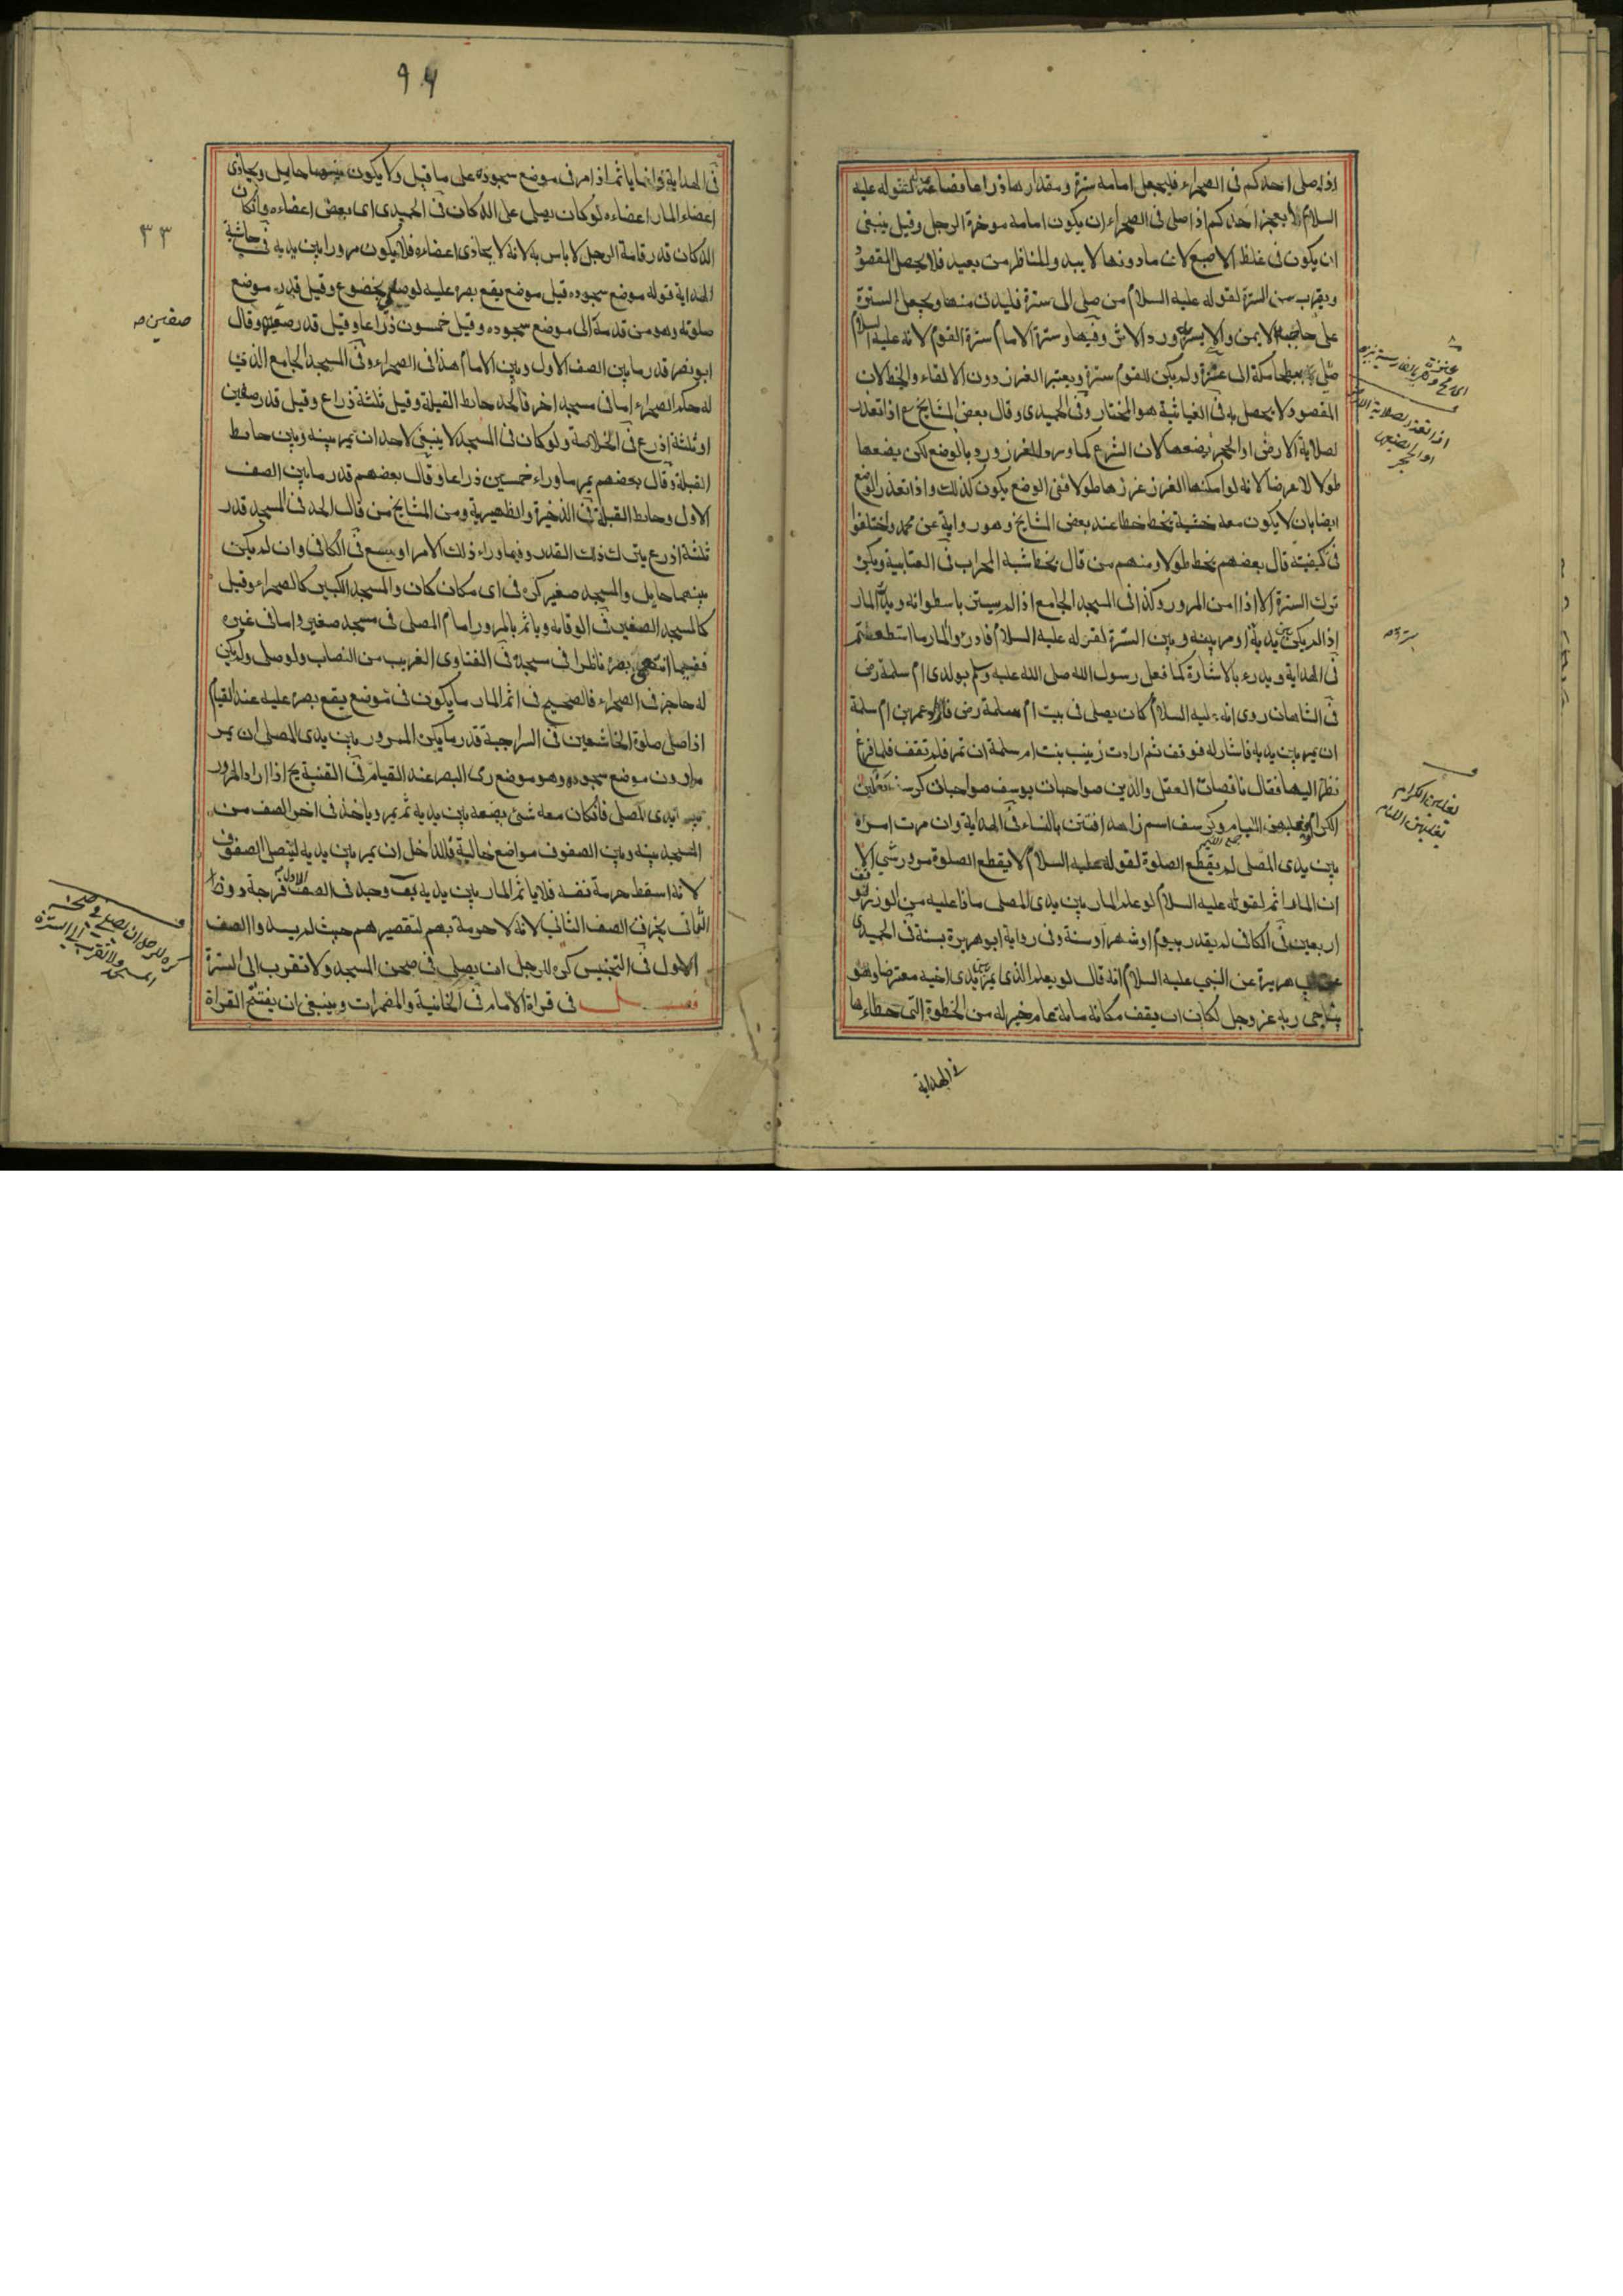 اذا صلى احدكم فى الصحراء فليجعل امامه سترة ومقدارها ذراعا فصاعدا لقوله عليه
السلام ايعجز احدكم اذا صلى فى الصحراء ان يكون امامه موخرة الرحل وقيل ينبغى
ان يكون فى غلظ الاصبع لان مادونها لا يبدو للناظر من بعيد فلا يحصل المقصود
ويقرب من السترة لقوله عليه السلام من صلى الى سترة فليدن منها ويجعل السترة
على حاجبه الايمن والايسر ورد الاثر وفيها وسترة الامام سترة القوم لانه عليه السلام
صلى ببطحا مكة الى عنزة ولم يكن للقوم سترة ويعتبر الغرز دون الالقاء والخط لان
المقصود لا يحصل به فى الغياثية هو المختار وفى الحميدى وقال بعض المشايخ اذا تعذر
لصلابة الارض او الحجر يضعها لان الشرع كما ورد بالغرز ورد بالوضع لكن يضعها
طولا لا عرضا لانه لو امكنها الغرز غرزها طولا ففى الوضع يكون كذلك واذا تعذر الوضع
ايضا بان لا يكون معه خشبة يخط خطا عند بعض المشايخ وهو رواية عن محمد واختلفوا
فى كيفيته قال بعضهم يخط طولا ومنهم من قال يخط شبه المحراب فى العتابية ويكره
ترك السترة الا اذا امن المرور وكذا فى المسجد الجامع اذا لم يستتر باسطوانه ويدرأ المار
اذا لم يكن بين يديه او مر بينه وبين السترة لقوله عليه السلام فادرؤا المار ما استطعتم
فى الهداية ويدرء بالاشارة كما فعل رسول الله صلى الله عليه وسلم بولدى ام سلمة رض
فى الشاهان روى انه عليه السلام كان يصلى فى بيت ام سلمة رض فاراد عمر بن ام سلمة
ان يمر بين يديه فاشار له فوقف ثم ارادت زينب بنت ام سلمة ان تمر فلم تقف فلما فرغ
نظر اليها فقال ناقصات العقل والدين صواحبات يوسف صواحبات كرسف يغلبن
الكرام ويغلبهن اللئام وكرسف اسم زاهد افتتن بالنساء فى الهداية وان مرت امراة
بين يدى المصلى لم يقطع الصلوة لقوله عليه السلام لا يقطع الصلوة مرور شي الا
ان المار اثم لقوله عليه السلام لو علم المار بين يدى المصلى ماذا عليه من الوزر لوقف
اربعين فى الكافى لم يقدر بيوم او شهر او سنة وفى رواية ابو هريرة بسنة فى الحميدى
هريرة عن النبي عليه السلام انه قال لو يعلم الذى يمر بين يدى اخيه معترضا وهو
يناجى ربه عز وجل لكان ان يقف مكانه ماية عام خير له من الخطوة التى خطاءها
فى الهداية
عنزة
اذا تعذر لصلابة الارض
او الحجر يضعها
سترة
يغلبن الكرام
يغلبهن اللئام
٩٤
٣٣
فى الهداية وانما ياثم اذا مر فى موضع سجوده على ما قيل ولا يكون بينهما حايل ويحاذى
اعضاء المار اعضاءه لو كان يصلى على الدكان فى الحميدى اى بعض اعضاءه وانكان
الدكان قدر قامة الرجل لا باس به لانه لا يحاذى اعضاءه فلا يكون مرورا بين يديه فى حاشية
الهداية قوله موضع سجوده قيل موضع يقع بصره عليه لو صلى بخضوع وقيل قدر موضع
صلوته وهو من قدمه الى موضع سجوده وقيل خمسون ذراعا وقيل قدر صفين وقال
ابو نصر قدر ما بين الصف الاول وبين الامام هذا فى الصحراء وفى المسجد الجامع الذى
له حكم الصحراء اما فى مسجد اخر فالحد حايط القبلة وقيل ثلثة ذراع وقيل قدر صفين
او ثلثة اذرع فى الخلاصة ولو كان فى المسجد لا ينبغى لاحد ان يمر بينه وبين حايط
القبلة وقال بعضهم يمر ما وراء خمسين ذراعا وقال بعضهم قدر ما بين الصف
الاول وحايط القبلة فى الذخيرة والظهيرية ومن المشايخ من قال الحد فى المسجد قدر
ثلثة اذرع يترك ذلك القدر وفيما وراء ذلك الامر اوسع فى الكافى وان لم يكن
بينهما حايل والمسجد صغير كره فى اى مكان كان والمسجد الكبير كالصحراء وقيل
كالمسجد الصغير فى الوقاية وياثم بالمرور امام المصلى فى مسجد صغير واما فى غيره
ففيما انتهى بصره ناظرا فى سجده فى الفتاوى الغريب من النصاب ولو صلى ولم يكن
له حاجز فى الصحراء فالصحيح فى اثم المار ما يكون فى موضع يقع بصره عليه عند القيام
اذا صلى صلوة الخاشعين فى السراجية قدر ما يكره المرور بين يدى المصلى ان يمر
مادون موضع سجوده وهو موضع رى البصر عند القيام فى القنية اذا اراد المرور
بين يدى المصلى فانكان معه شئ يضعه بين يديه ثم يمر وياخذه فى اخر الصف من
المسجد بينه وبين الصفوف مواضع خالية فللداخل ان يمر بين يديه ليصل الصفوف
لانه اسقط حرمة نفسه فلا ياثم المار بين يديه وجد فى الصف الاول فرجة دون
الثانى يخرق الصف الثانى لانه لا حرمة بهم لتقصيرهم حيث لم يسدوا الصف
الاول فى التجنيس كره للرجل ان يصلى فى صحن المسجد ولا تقرب الى السترة
فصل فى قراة الامام فى الخانية والمضمرات وينبغى ان يفتتح القراة
صفين ص
كره للرجل ان يصلى فى صحن
المسجد ولا تقرب الى السترة